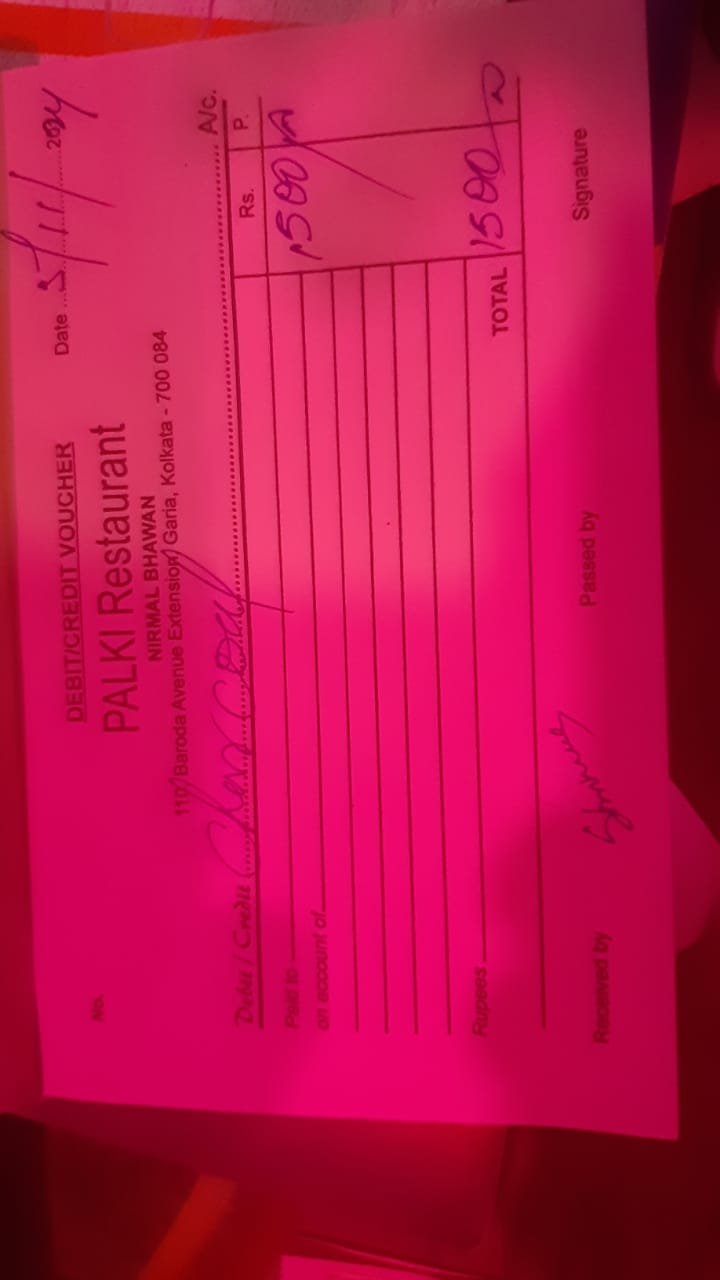 DEBIT/CREDIT VOUCHER
No. Date 5/11/2024
PALKI Restaurant
NIRMAL BHAWAN
110, Baroda Avenue Extension, Garia, Kolkata - 700 084
Debit / Credit A/c.
Rs. P.
Paid to 1500
on account of
Rupees TOTAL 1500
Received by Passed by Signature